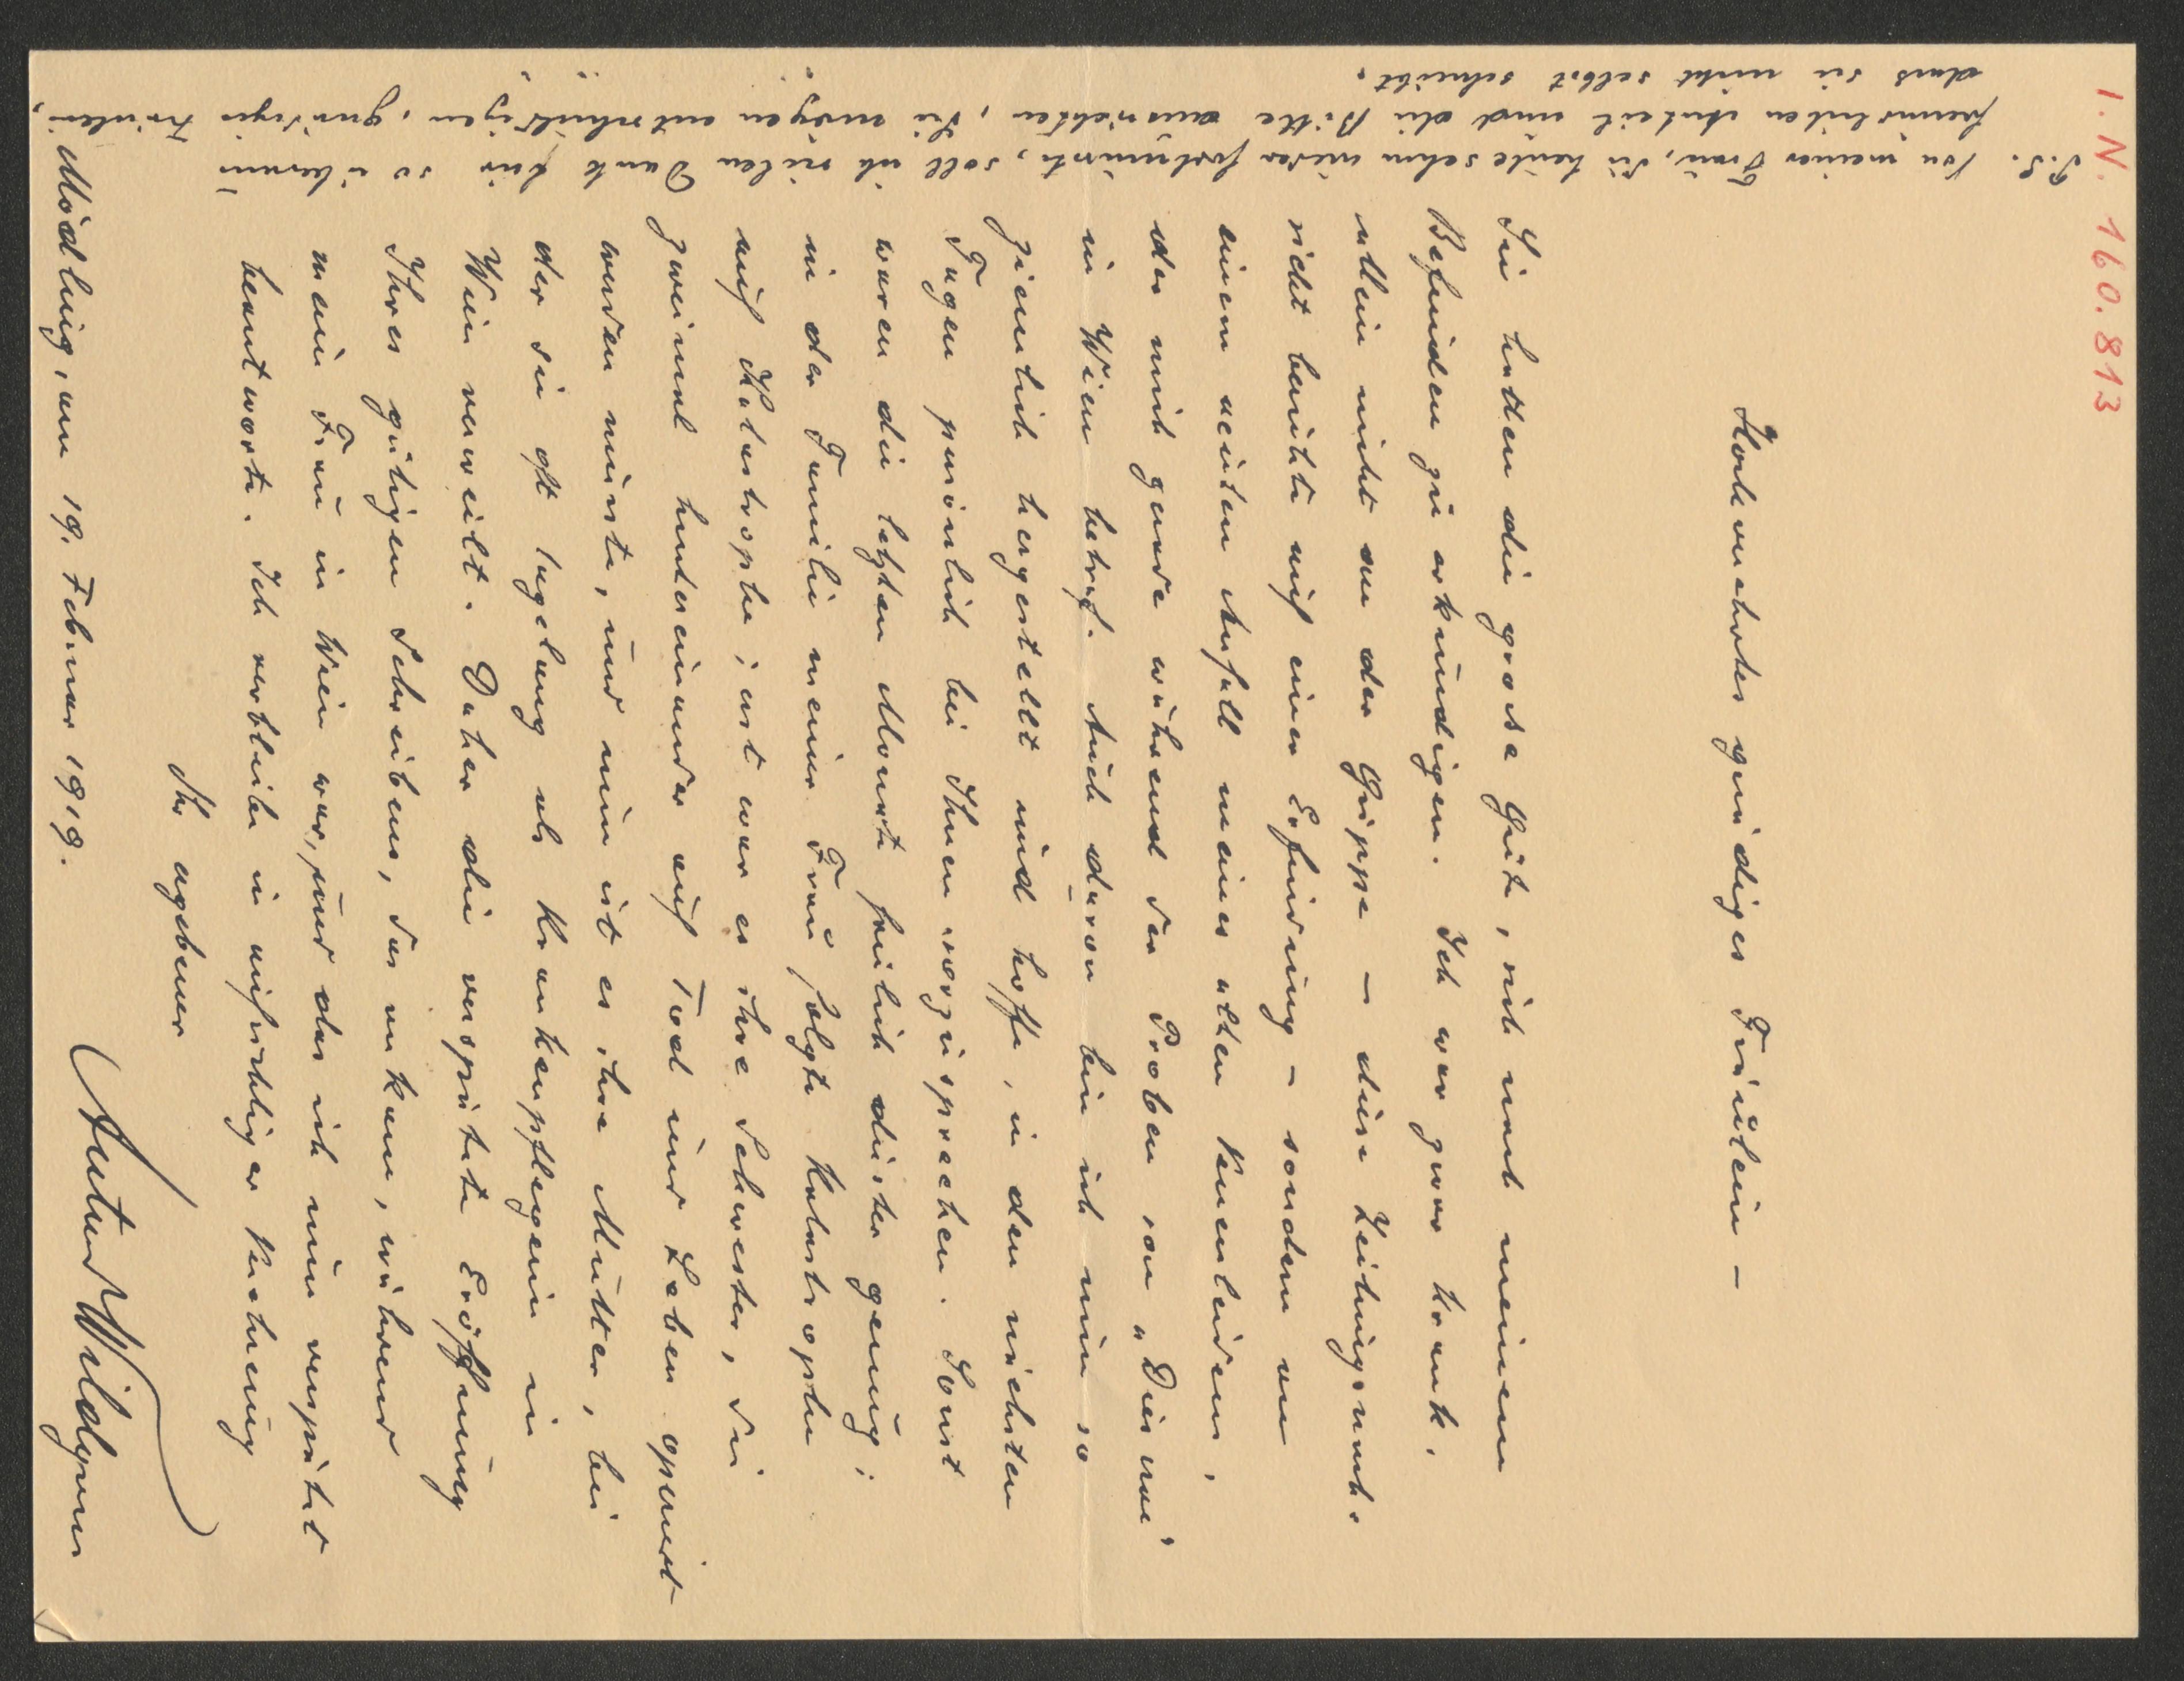 I. N. 160.813
Hochverehrtes gnädiges Fräulein –
Sie hatten die grosse Güte, sich nach meinem
Befinden zu erkundigen. Ich war zwar krank,
allein nicht an der Grippe – diese Zeitungsnach-
richt beruhte auf einer Erfindung – sondern an
einem neuen Anfall meines alten Venenleidens,
der mich gerade während der Proben von „Dies irae“
in Wien betraf. Auch davon bin ich nun so
ziemlich hergestellt und hoffe, in den nächsten
Tagen persönlich bei Ihnen vorzusprechen. Sonst
waren die letzten Monate freilich düster genug;
in der Familie meiner Frau folgte Katastrophe
auf Katastrophe; erst war es ihre Schwester, die
zweimal hintereinander auf Tod und Leben operiert
werden musste, und nun ist es ihre Mutter, bei
der sie oft tagelang als Krankenpflegerin in
Wien verweilt. Daher die verspätete Eröffnung
Ihres gütigen Schreibens, das ankam, während
meine Frau in Wien war, und das ich nun verspätet
beantworte. Ich verbleibe in aufrichtiger Verehrung
Ihr ergebener
Anton Wildgans
Mödling, am 19. Februar 1919.
P.S. Von meiner Frau, die heute schon wieder fortmusste, soll ich vielen Dank für so überaus
freundlichen Anteil und die Bitte ausrichten, Sie mögen entschuldigen, gnädiges Fräulein,
dass sie nicht selbst schreibt.